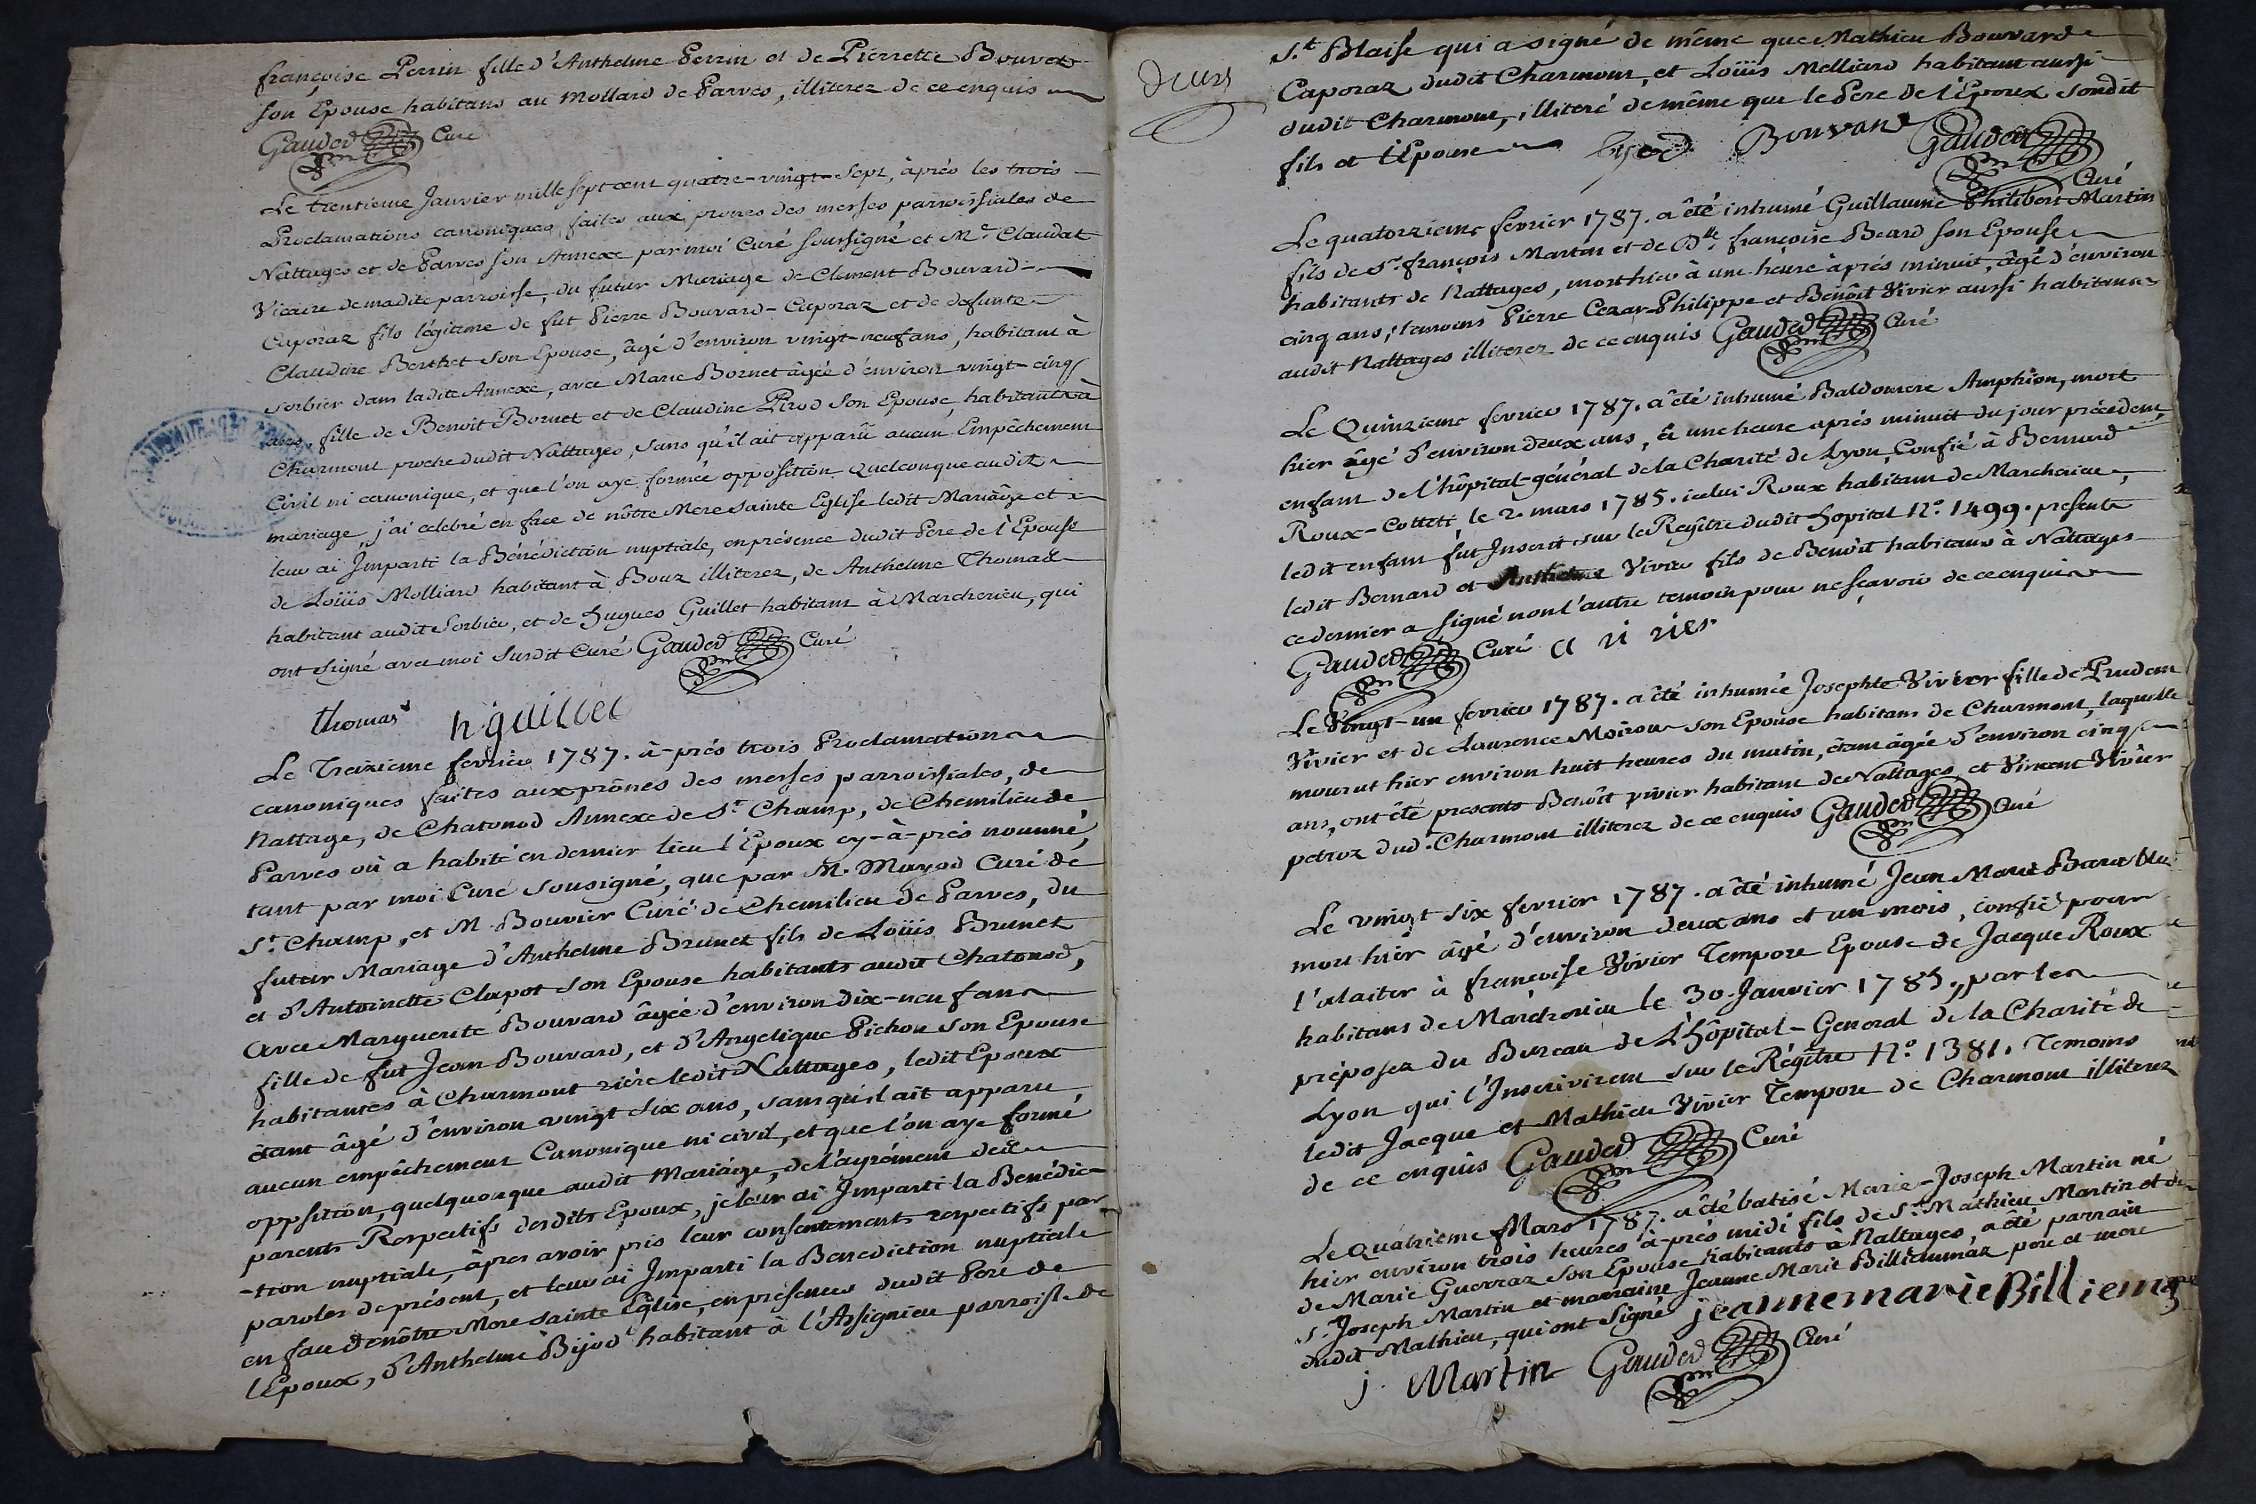 françoise Perrin fille d'Anthelme Perrin et de Pierrette Bouvet
son Epouse habitans au Mollard de Parves, illiterez de ce enquis
Gauded Curé
Le trentieme Janvier mille sept cent quatre-vingt-sept, àprès les trois
Proclamations canoniques faites aux prones des messes parroissiales de
Nattages et de Parves son Annexe par moi Curé soussigné et Mr. Claudat
Vicaire de madite parroisse, du futur Mariage de Clement Bouvard-
Caporaz fils légitime de fut Pierre Bouvard-Caporaz et de defunte
Claudine Berthet son Epouse, âgé d'environ vingt-neuf ans, habitant à
Sorbier dans ladite Annexe, avec Marie Bornet âgée d'environ vingt-cinq
ans, fille de Benoit Bornet et de Claudine Pirod son Epouse, habitants à
Charmont proche dudit Nattages, sans qu'il ait apparû aucun Empêchement
Civil ni canonique, et que l'on aye formée opposition quelconque audit
mariage j'ai celebré en face de nôtre Mere sainte Eglise ledit Mariâge et
leur ai Imparti la Bénédiction nuptiale, en présence dudit Pere de l'Epouse
de Loüis Molliard habitant à Bouz illiterez, de Anthelme Thomas
habitant audit Sorbier, et de Hugues Guillet habitant à Marcherieu, qui
ont signé avec moi Susdit Curé Gauded Curé
thomas h guillet
Le Treizieme fevrier 1787. à-près trois Proclamations
canoniques faites aux prônes des messes parroissiales, de
Nattage, de Chatonod Annexe de St Champ, de Chemilieu de
Parves où a habité en dernier lieu l'Epoux cy-à-près nommé,
tant par moi Curé sousigné, que par M. Mayod Curé de
St. Champ, et M. Bouvier Curé de Chemilieu de Parves, du
futur Mariage d'Anthelme Brunet fils de Loüis Brunet
et d'Antoinette Clapot son Epouse habitants audit Chatonod,
avec Marguerite Bouvard âgée d'environ dix-neuf ans
fille de fut Jean Bouvard, et d'Angelique Pichon son Epouse
habitantes à Charmont rière ledit Nattages, ledit Epoux
étant âgé d'environ vingt six ans, sans qu'il ait apparu
aucun empêchement Canonique ni civil, et que l'on aye formé
oppsition, quelquonque audit Mariâge, de l'agrément des
parents Respectifs desdits Epoux, je leur ai Imparti la Bénédic
-tion nuptiale, àpres avoir pris leur consentements respectifs par
paroles de présent, et leur ai Imparti la Benediction nuptiale
en face de nôtre Mere sainte Eglise, en présence dudit Pere de
l'Epoux, d'Anthelme Bijod habitant à l'Assignieu parroisse de
St. Blaise qui a signé de même que Mathieu Bouvard
Caporaz dudit Charmont, et Loüis Molliard habitant aussi
dudit Charmont, illiteré de même que le Pere de l'Epoux sondit
fils et l'Epouse Bouvard Gauded
Curé
Le quatorzieme fevrier 1787. a êté inhumé Guillaume Philibert Martin
fils de Sr. françois Martin et de Dlle. françoise Beard son Epouse
habitants de Nattages, mort hier à une heure àprés minuit, âgé d'environ
cinq ans, temoins Pierre Cezar-Philippe et Benôit Vivier aussi habitans
audit Nattages illiterez de ce enquis Gauded Curé
Le Quinzieme fevrier 1787. a êté inhumé Baldomere Amphion, mort
hier âgé d'environ deux ans, à une heure après minuit du jour précedent,
enfant de l'hôpital-général de la Charité de Lyon, Confié à Bernard
Roux-Collet le 2. mars 1785. icelui Roux habitant de Marcherieu,
ledit enfant fut Inscrit sur le Regître dudit hopital No. 1499. presents
ledit Bernard et Anthelme Vivier fils de Benôit habitans à Nattages
ce dernier a signé non l'autre temoin pour ne sçavoir de ce enquis
Gauded Curé
Le Vingt-un fevrier 1787. a êté inhumée Josephte Vivier fille de Prudent
Vivier et de Laurence Moiroux son Epouse habitans de Charmont, laquelle
mourut hier environ huit heures du matin, étant âgée d'environ cinq
ans, ont êté presents Benôit vivier habitant de Nattages, et Vincent Vivier
petroz dud. Charmont illiterez de ce enquis Gauded Curé
Le vingt six fevrier 1787. a êté inhumé Jean Marie
mort hier âgé d'environ deux ans et un mois, confié pour
l'alaiter à françoise Vivier Tempore Epouse de Jacque Roux
habitans de Marcherieu le 30. Janvier 1785., par les
préposez du Bureau de l'hôpital-General de la Charité de
Lyon qui l'Inscrivirent sur le Régître No. 1381. Temoins
ledit Jacque et Mathieu Vivier Tempore de Charmont illiterez
de ce enquis Gauded Curé
Le Quatrième Mars 1787. a êté batisé Marie-Joseph Martin né
hier environ trois heures à-près midi fils de Sr. Mathieu Martin et de
de Marie Guerraz son Epouse habitants à Nattages, a êté parrain
Sr. Joseph Martin et marraine Jeanne Marie Billiemmaz pere et mere
dudit Mathieu, qui ont Signé jeanne marie Billiemaz
j. Martin Gauded Curé